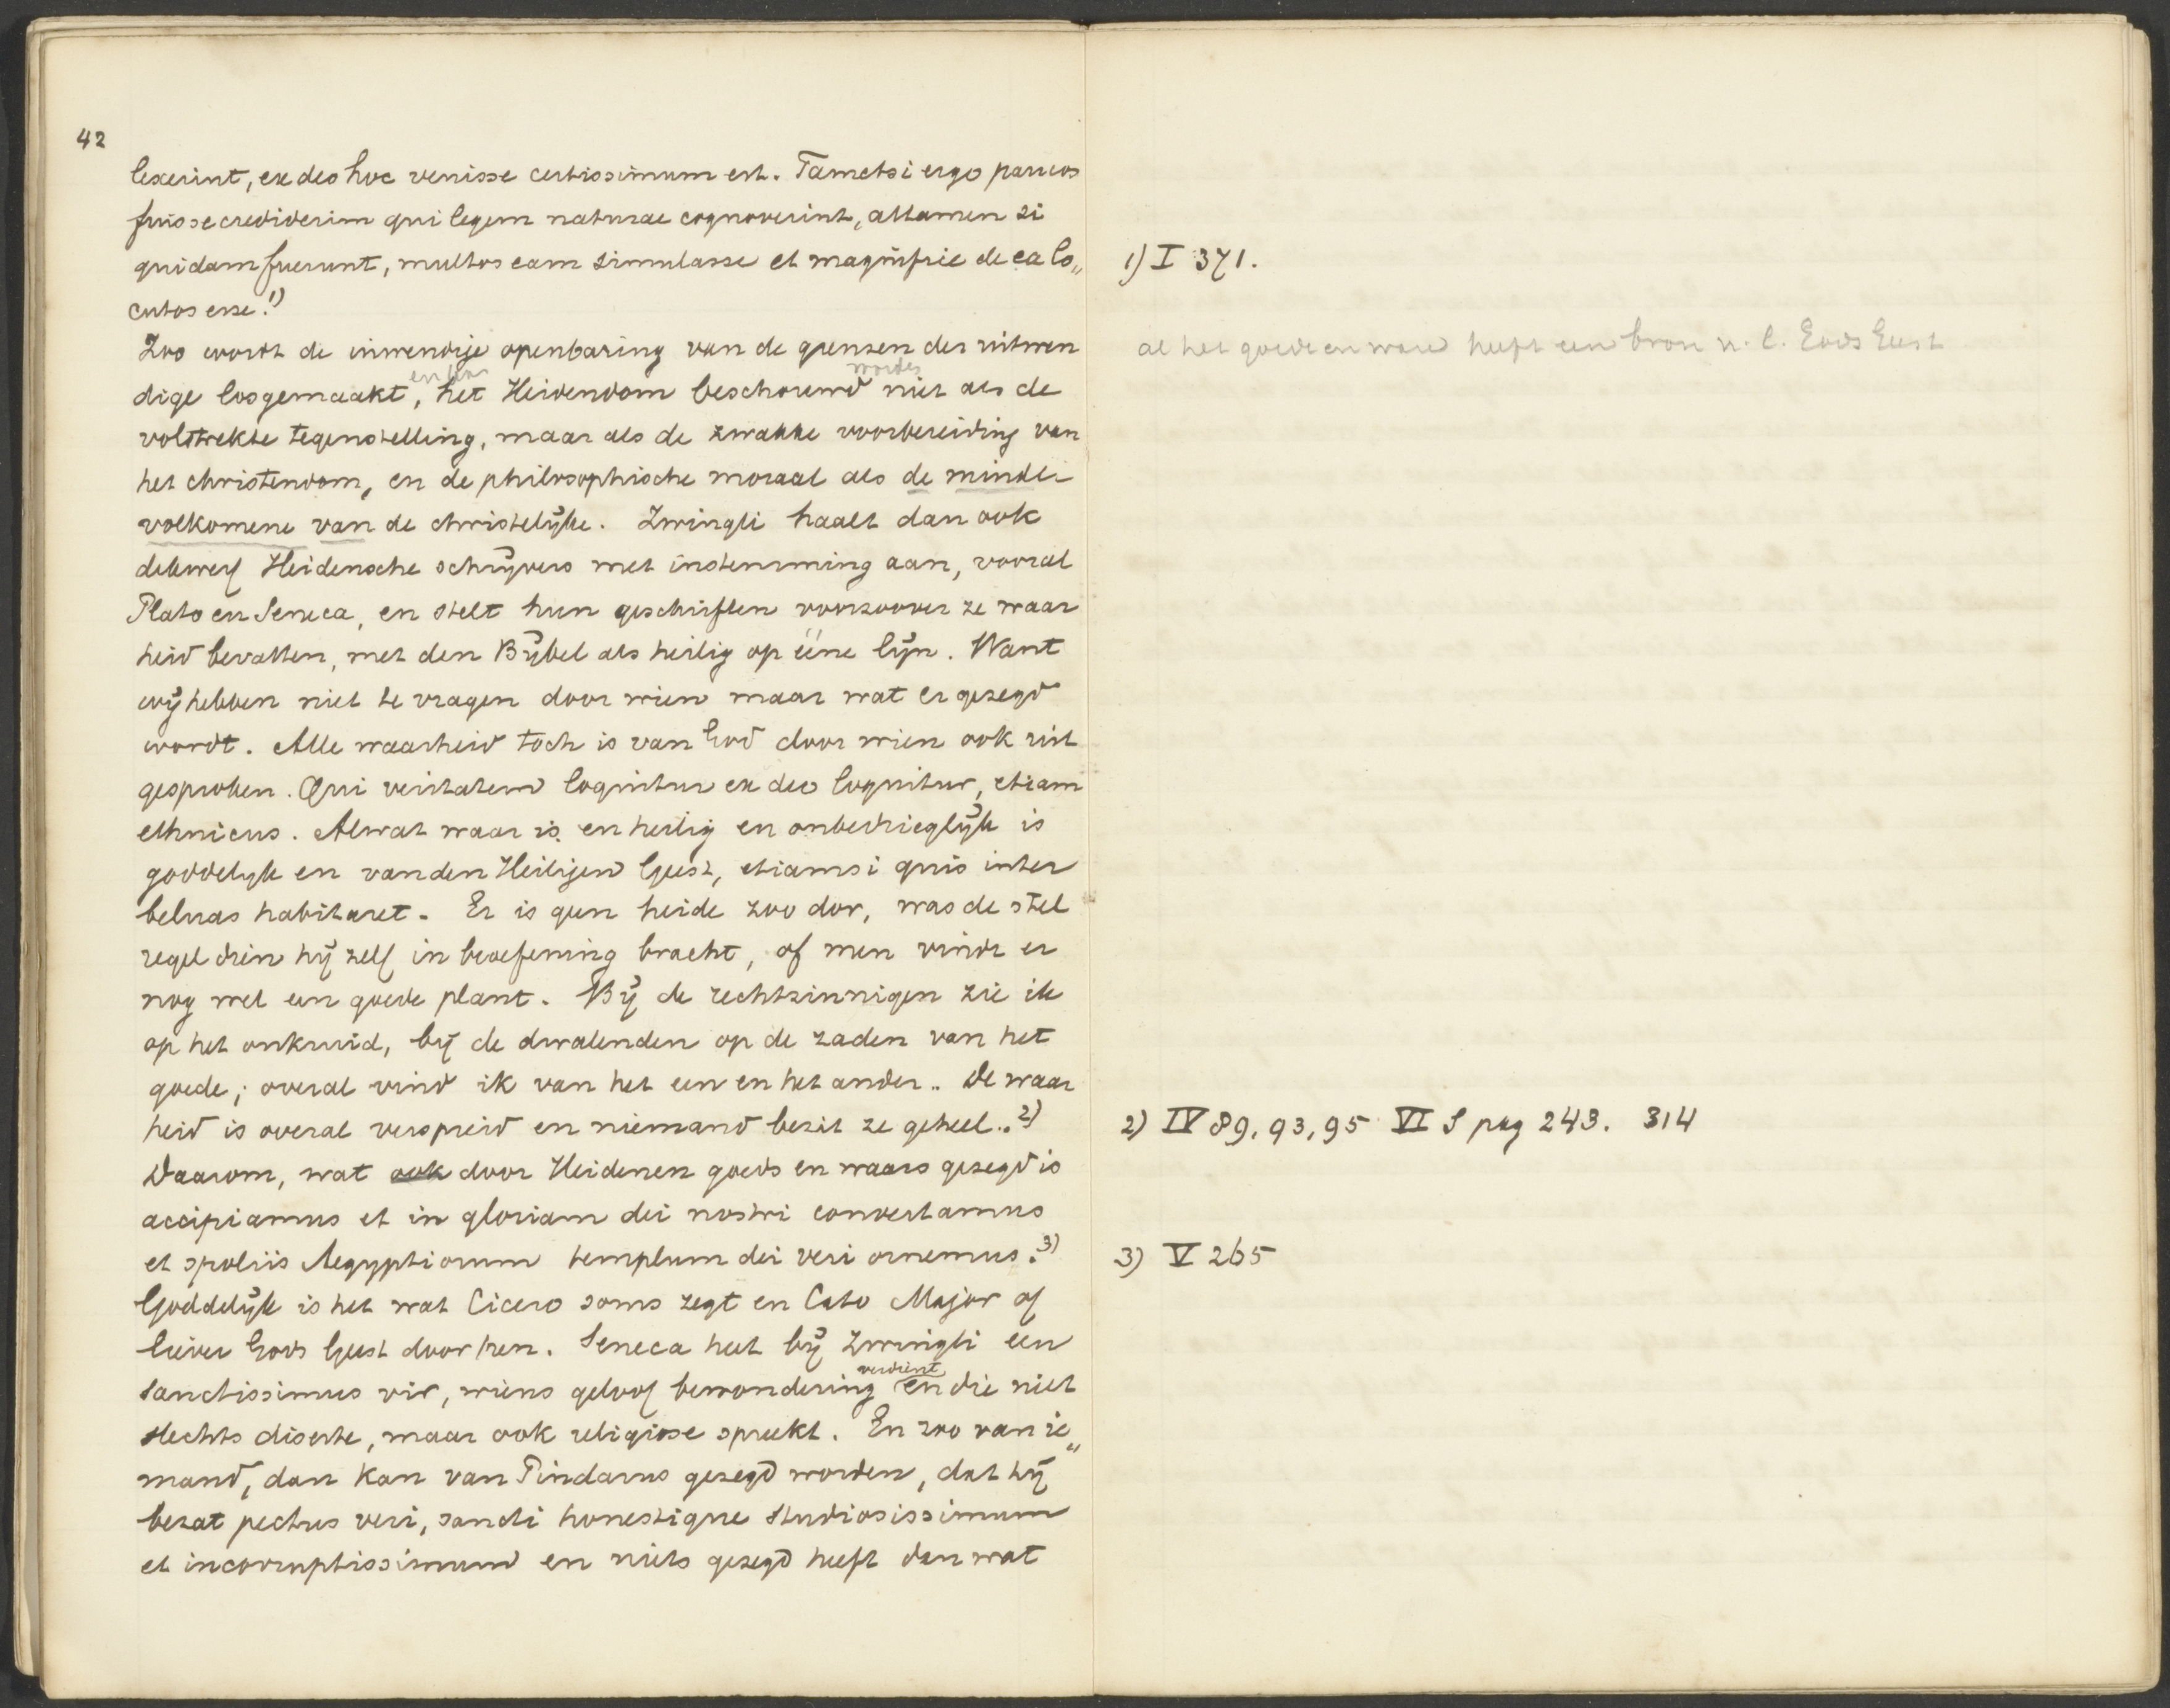 42
lexerint, ex deo hoc venisse certissimum est. Tametsi ergo paucos
fuisse crediderim qui legem naturae cognoverint, attamen si
quidam fuerunt, multos eam simulasse et magnifice de ea lo„
cutos esse.1)
Zoo wordt de inwendige openbaring van de grenzen der uitwen
en worden
dige losgemaakt, het Heidendom beschouwd niet als de
volstrekte tegenstelling, maar als de zwakke voorbereiding van
het christendom, en de philosophische moraal als de minder
volkomene van de christelijke. Zwingli haalt dan ook
dikwerf Heidensche schrijvers met instemming aan, vooral
Plato en Seneca, en stelt hun geschriften voorzoover ze waar
heid bevatten, met den Bijbel als heilig op ééne lijn. Want
wij hebben niet te vragen door wien maar wat er gezegd
wordt. Alle waarheid toch is van God door wien ook uit
gesproken. Qui veritatem loquitur ex deo loquitur, etiam
ethnicus. Alwat waar is en heilig en onbedrieglijk is
goddelijk en van den Heiligen Geest, etiamsi quis inter
beluas habitaret. Er is geen heide zoo dor, was de stel
regel dien hij zelf in beoefening bracht, of men vindt er
nog wel een goede plant. Bij de rechtzinnigen zie ik
op het onkruid, bij de dwalenden op de zaden van het
goede; overal vind ik van het een en het ander.. De waar
heid is overal verspreid en niemand bezit ze geheel..2)
Daarom, wat ook door Heidenen goeds en waars gezegd is
accipiamus et in gloriam dei nostri convertamus
et spoliis Aegyptiorum templum dei veri ornemus.3)
Goddelijk is het wat Cicero soms zegt en Cato Major of
liever Gods Geest door hen. Seneca heet bij Zwingli een
verdient
sanctissimus vir, wiens geloof bewondering en die niet
slechts diserte, maar ook religiose spreekt. En zoo van ie„
mand, dan kan van Pindarus gezegd worden, dat hij
bezat pectus veri, sancti honestique studiosissimum
et incorruptissimum en niets gezegd heeft dan wat
1) I 371.
al het goede en ware heeft een bron n. l. Gods Geest
2) IV 89, 93, 95 VI S pag 243. 314
3) V 265